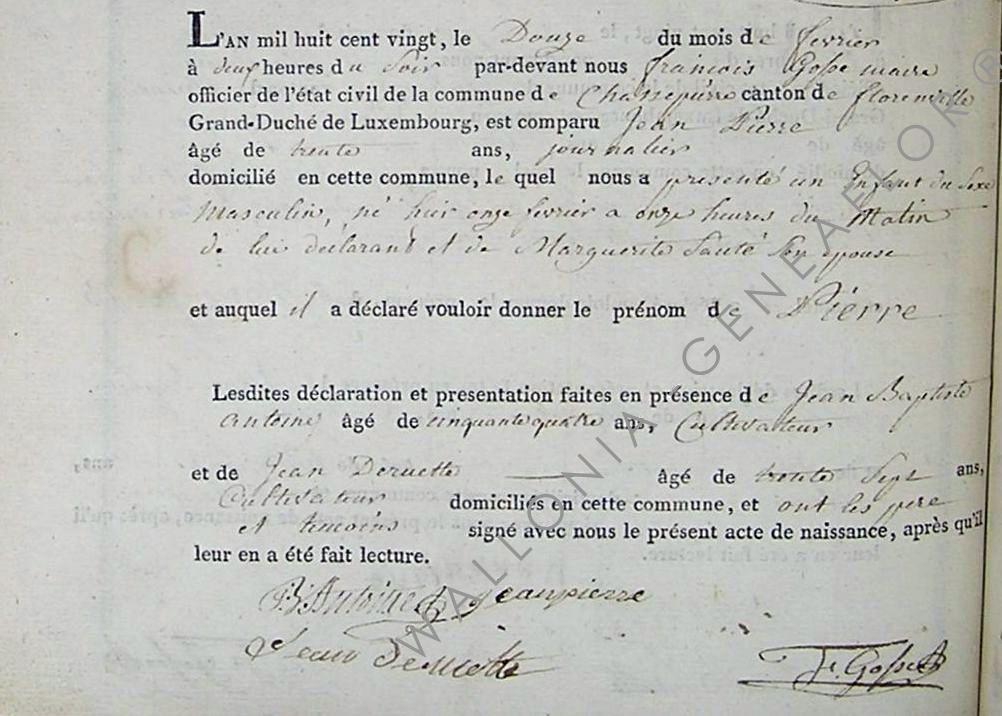 L'AN mil huit cent vingt, le Douze du mois de fevrier
à deux heures du Soir par-devant nous françois Gosse maire
officier de l'état civil de la commune de Chassepierre canton de florenville
Grand-Duché de Luxembourg, est comparu Jean Pierre
âgé de trente ans, journalier
domicilié en cette commune, le quel nous a présenté un Enfant du Sexe
Masculin, né hier onze fevrier a onze heures du Matin
de lui déclarant et de Marguerite Santé Son épouse
et auquel il a déclaré vouloir donner le prénom de Pierre
Lesdites déclaration et presentation faites en présence de Jean Baptiste
antoine âgé de cinquante quatre ans, Cultivateur
et de Jean Deruette âgé de trente Sept ans,
Cultivateur domiciliés en cette commune, et ont les pere
et temoins signé avec nous le présent acte de naissance, après qu'il
leur en a été fait lecture.
B Antoine Jeanpierre
Jean Deruette
F. Gosse
WALLONIA GENEAELOR ®